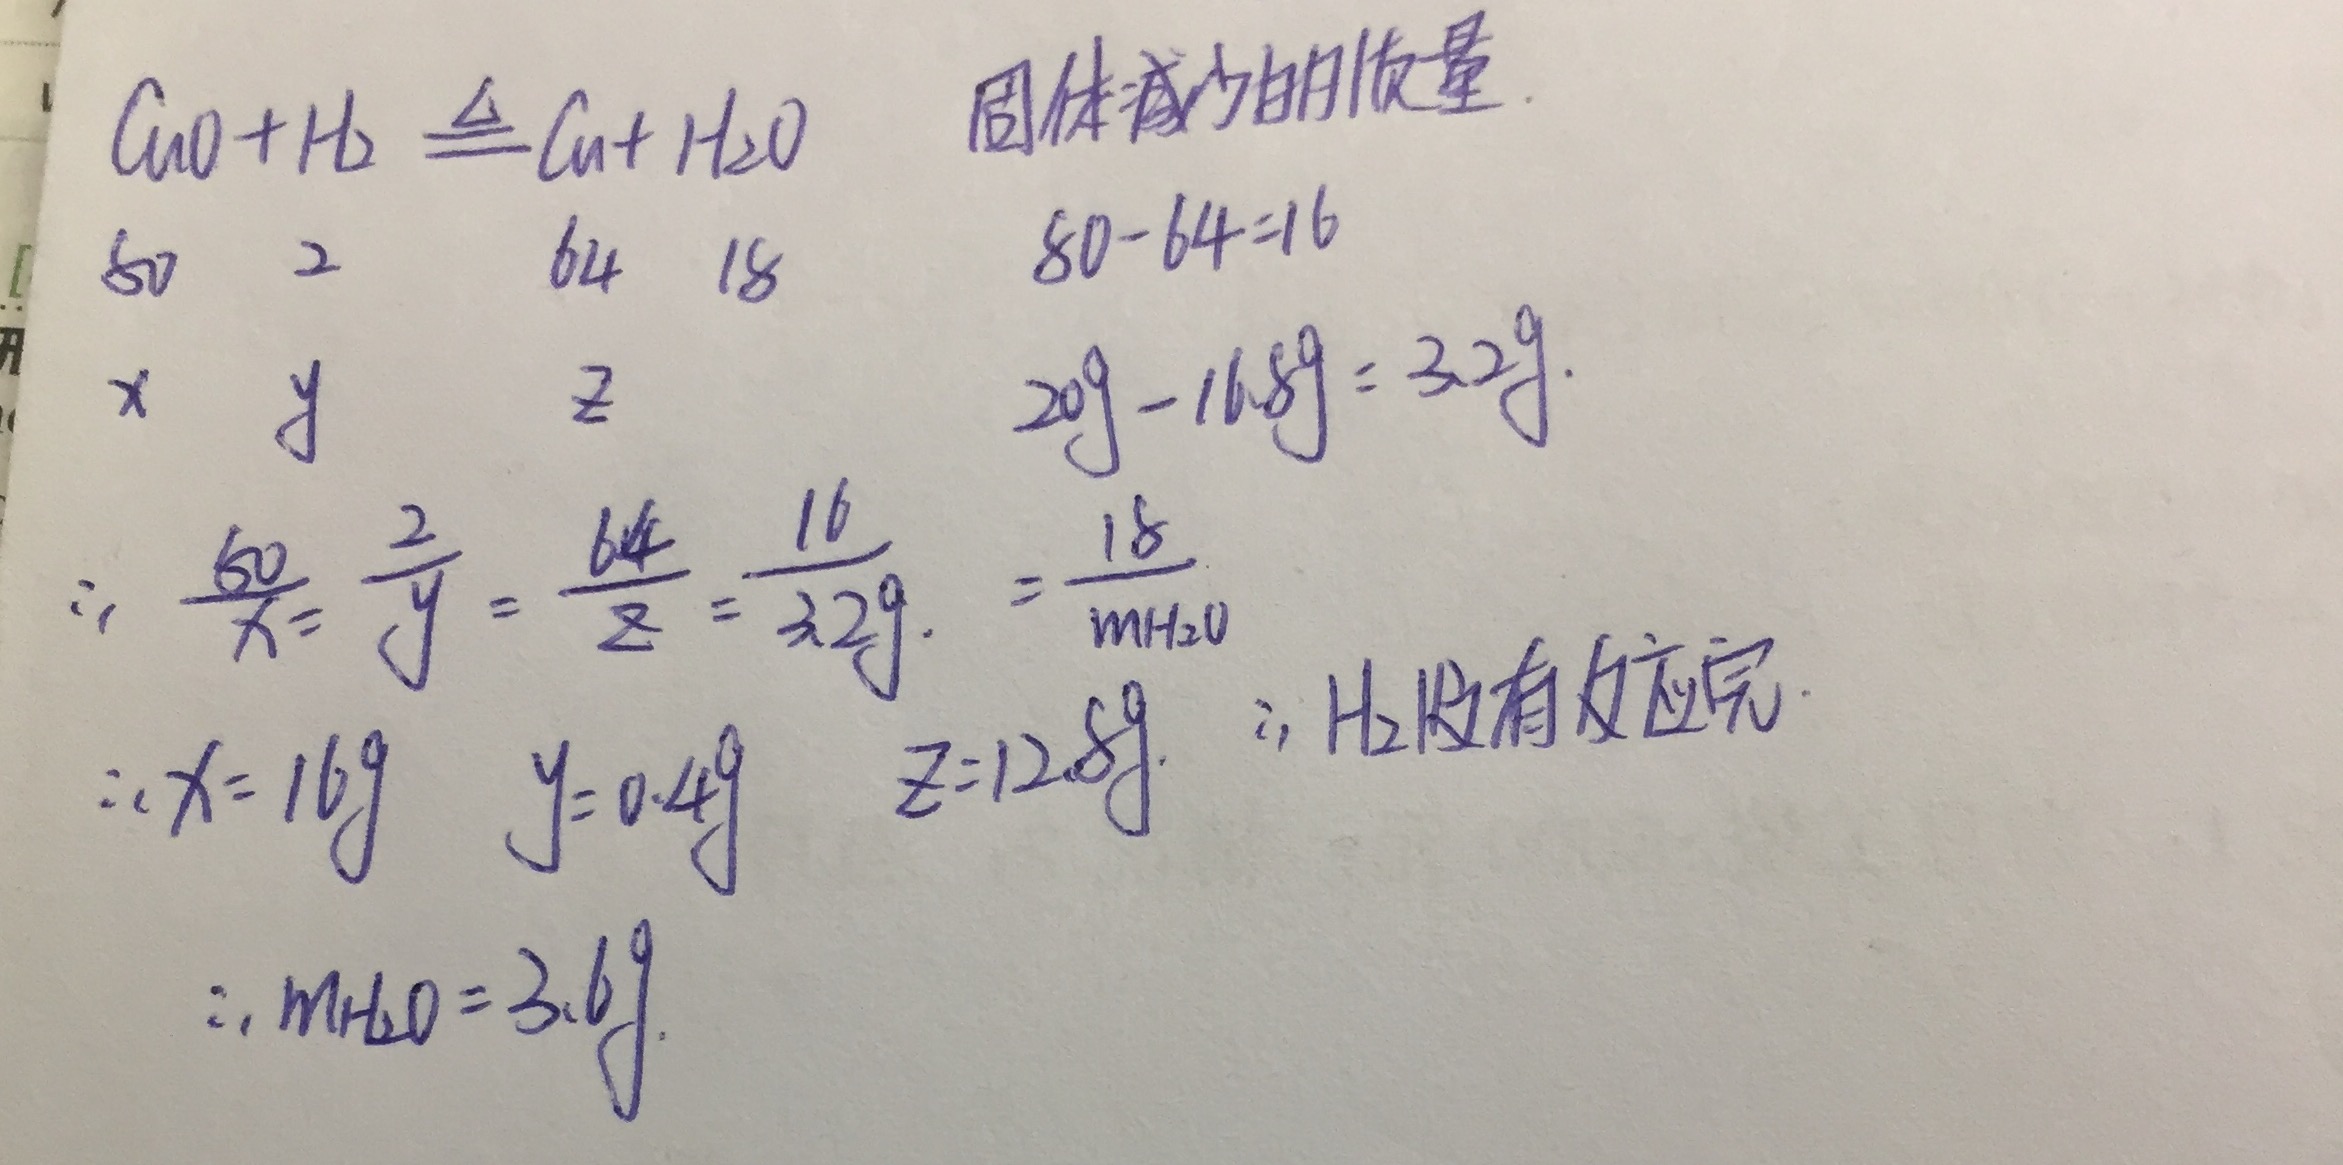 CuO+H2 △══ Cu+H2O 固体减少的质量.
80 2 64 18 80-64=16
x y z 20g-16.8g=3.2g.
∴ 80/x=2/y=64/z=16/3.2g.=18/mH2O
∴x=16g y=0.4g z=12.8g. ∴H2没有反应完.
∴mH2O=3.6g.